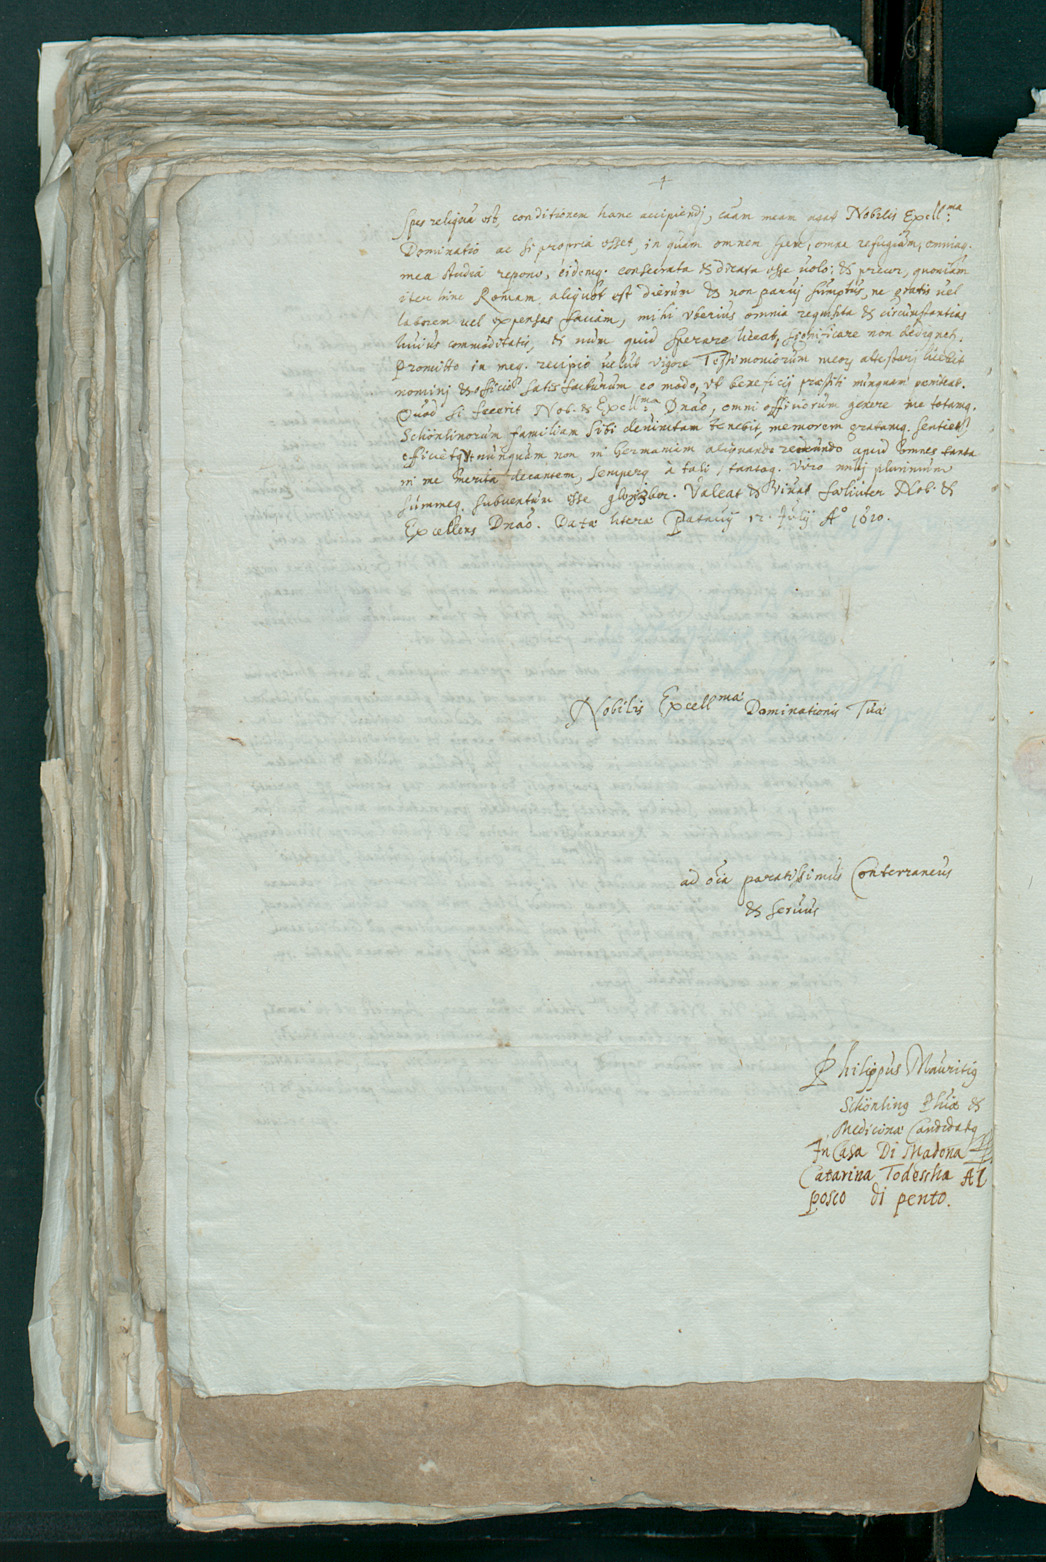 4
spes reliqua est, conditionem hanc accipiendi, cãm meam agat Nobilis Excell:ma
Dominatio ac si propria esset, in quam omnem spem, omne refugium, omniaq.
mea studia repono, eidemq. consecrata & dicata esse uolo: & precor, quoniam
iter hinc Romam aliquot est dierum & non parvij sumptus, ne gratis uel
laborem uel expensas faciam, mihi vberius omnia requisita & circumstantias
huius commoditatis, & num quid sperare liceat, significare non dedignat.
Promitto in meq. recipio velut vigore Testimoniorum meorum attestarj licebit
nominj & officio satisfacturum eo modo, vt beneficij præstiti nunquam pœniteat.
Quod si fecerit Nob. & Excell:ma Dnãõ, omni officiorum genere me totamq.
Schönlinorum familiam sibi deuinctam tenebit, memorem gratamq. sentiet
efficietq. nunquam non in Germaniam aliquando redeundo apud omnes tanta
in me merita decantem, semperq. a tali, tantoq. Viro mihi plurimum
summeq. subuentum esse glorier. Valeat & Viuat fœliciter Nob. &
Excellens Dnãõ. Datæ literæ Patauij 12. Julij Aº 1620.
Nobilis Excellmæ Dominationis Tuæ
ad oĩa paratissimus Conterraneus
& seruus
Philippus Mauritius
Schönling Phiæ &
Medicinæ Candidatus
In Casa Di Madona
Catarina Todescha Al
posco di pento.